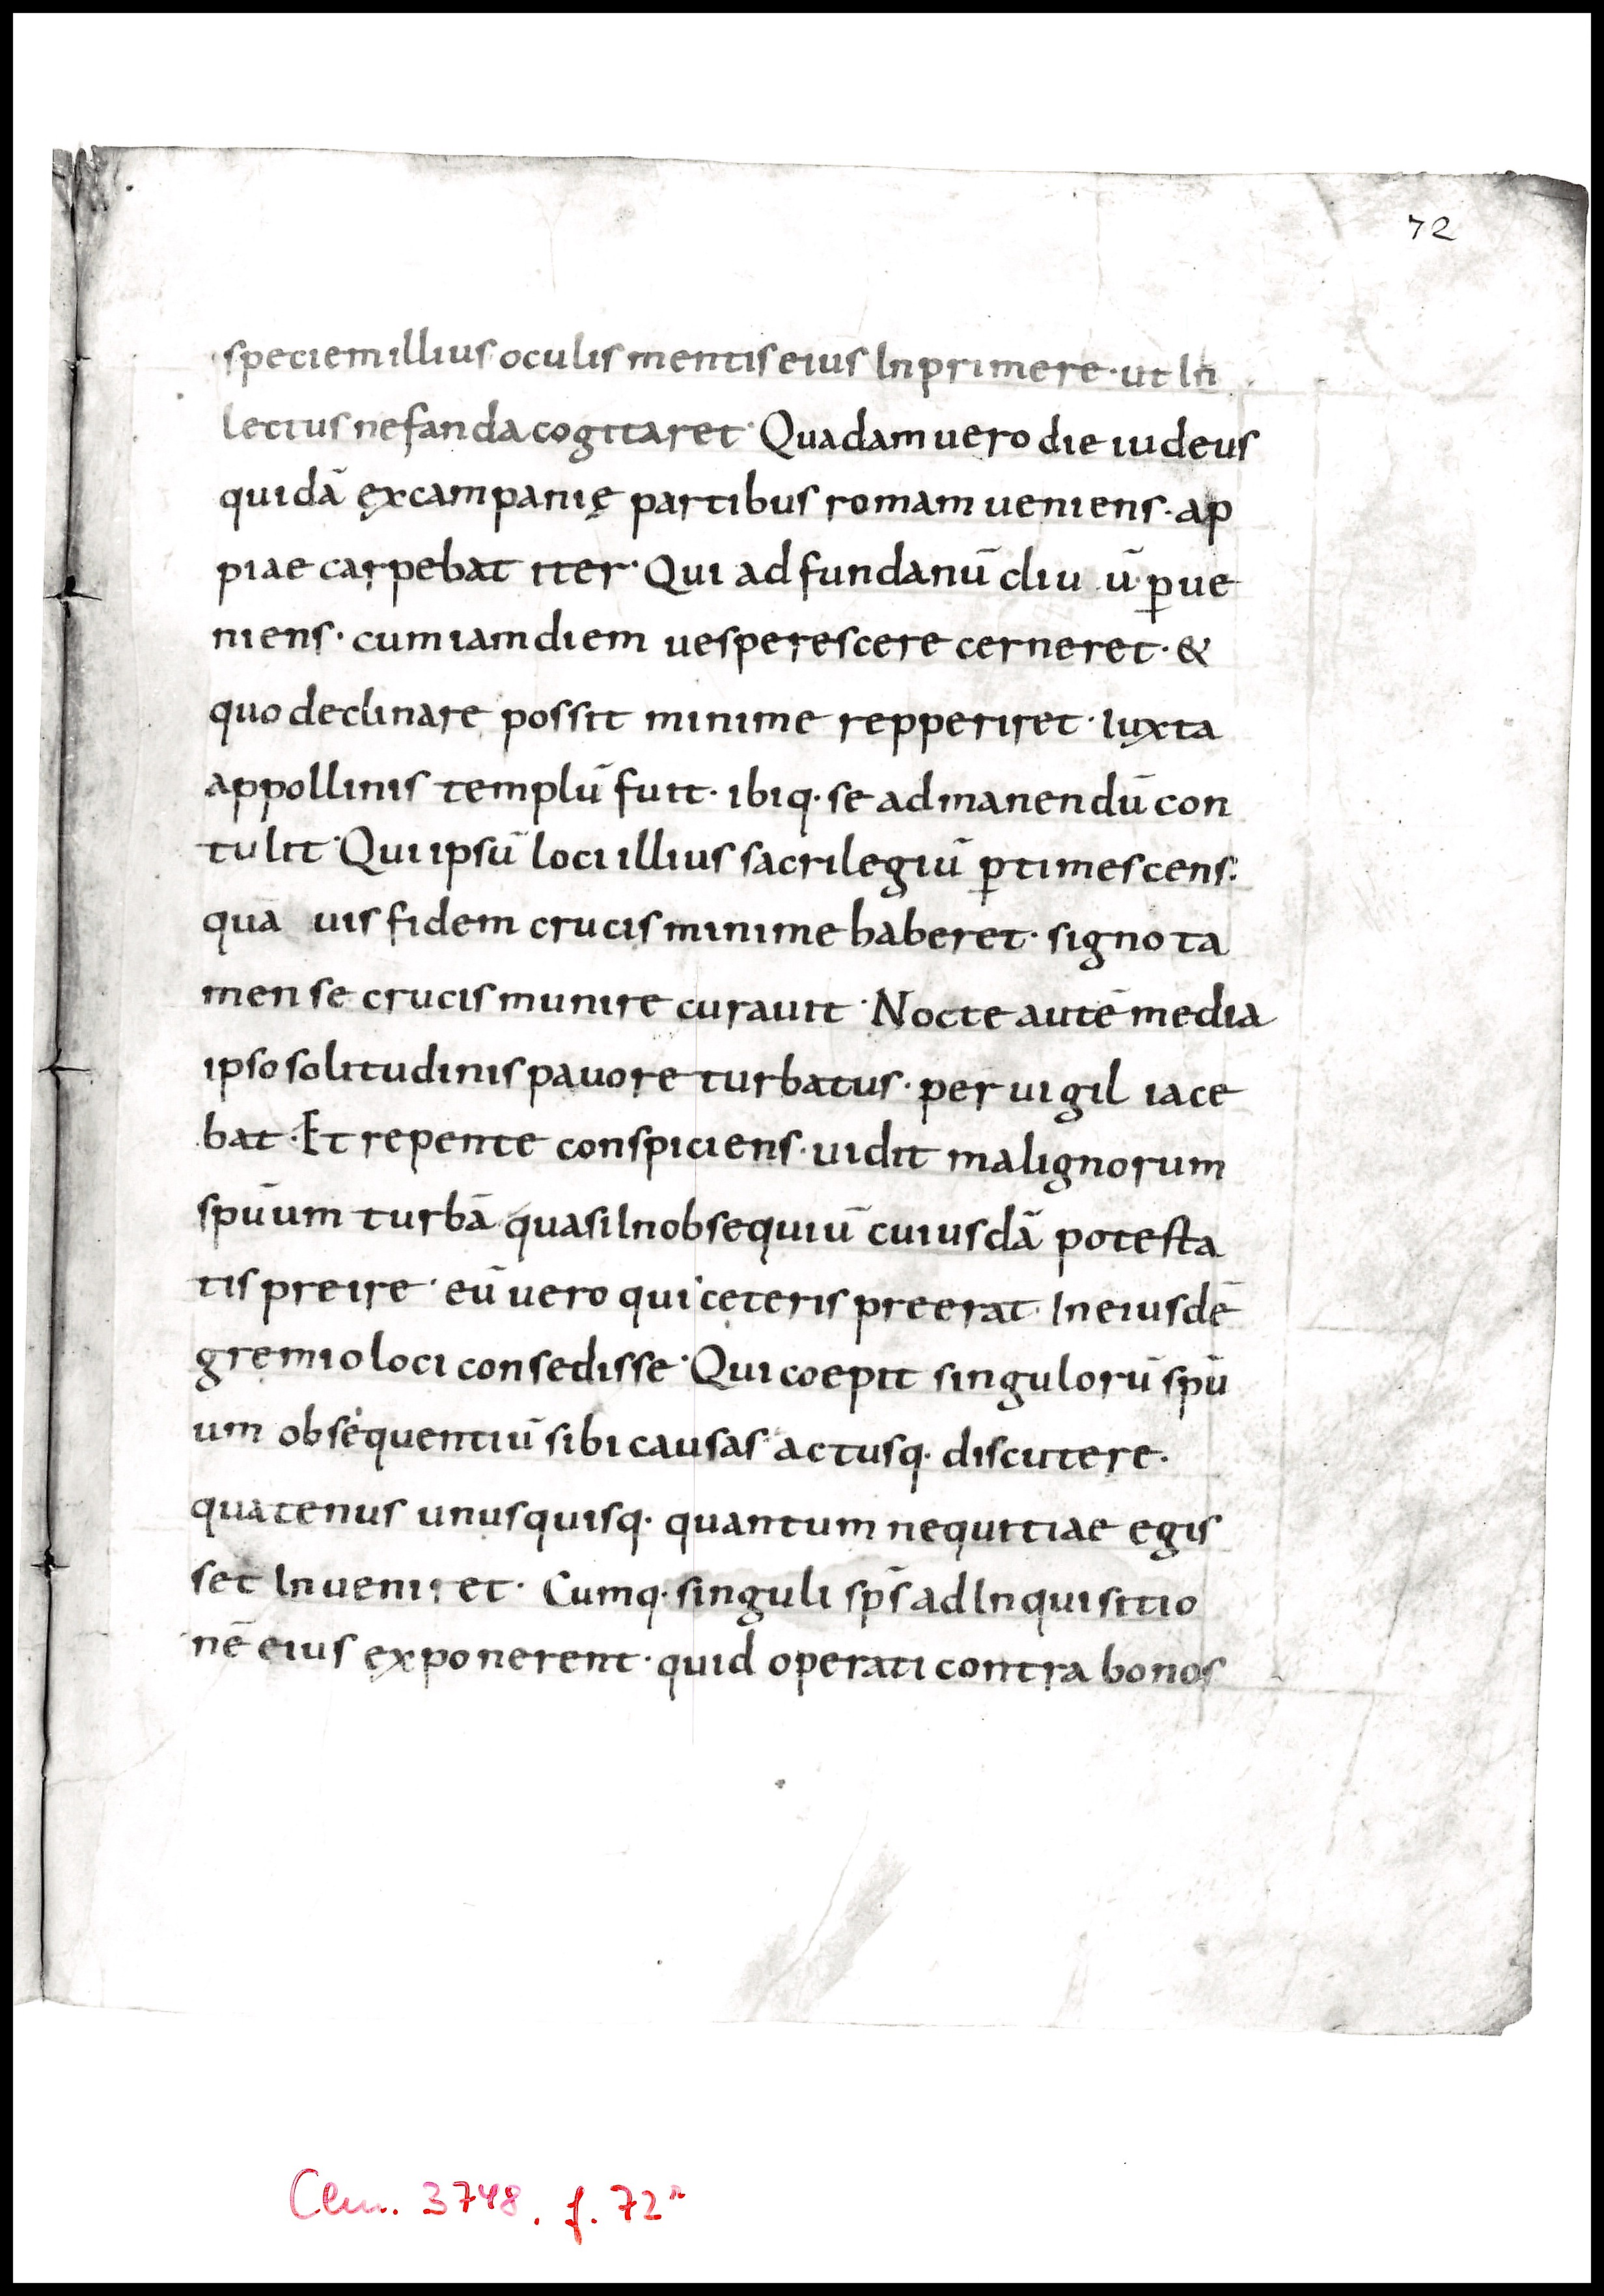 72
speciem illius oculis mentis eius Inprimere · ut In
lectus nefanda cogitaret · Quadam uero die iudeus
quidā ęxcampanię partibus romam ueniens · ap
piae carpebat iter · Qui ad fundanū cliu ū · ꝑue
niens · cum iam diem uesperescere cerneret · &
quo declinare possit minime repperiret · Iuxta
appollinis templū fuit · ibiq · se ad manendū con
tulit · Qui ipsū loci illius sacrilegiū ꝑtimescens ·
quā uis fidem crucis minime haberet · signo ta
men se crucis munire curauit · Nocte autē media
ipso solitudinis pauore turbatus · per uigil iace
bat · Et repente conspiciens · uidit malignorum
spūum turbā quasi Inobsequiū cuiusdā potesta
tis preire · eū uero qui ceteris preerat · In eiusdē
gremio loci consedisse · Qui coepit singulorū spū
um obsequentiū sibi causas actusq · discutere ·
quatenus unusquisq · quantum nequitiae egis
set Inueniret · Cumq · singuli sp̄s ad Inquisitio
nē eius exponerent · quid operati contra bonos
Clm. 3748. f. 72ʳ